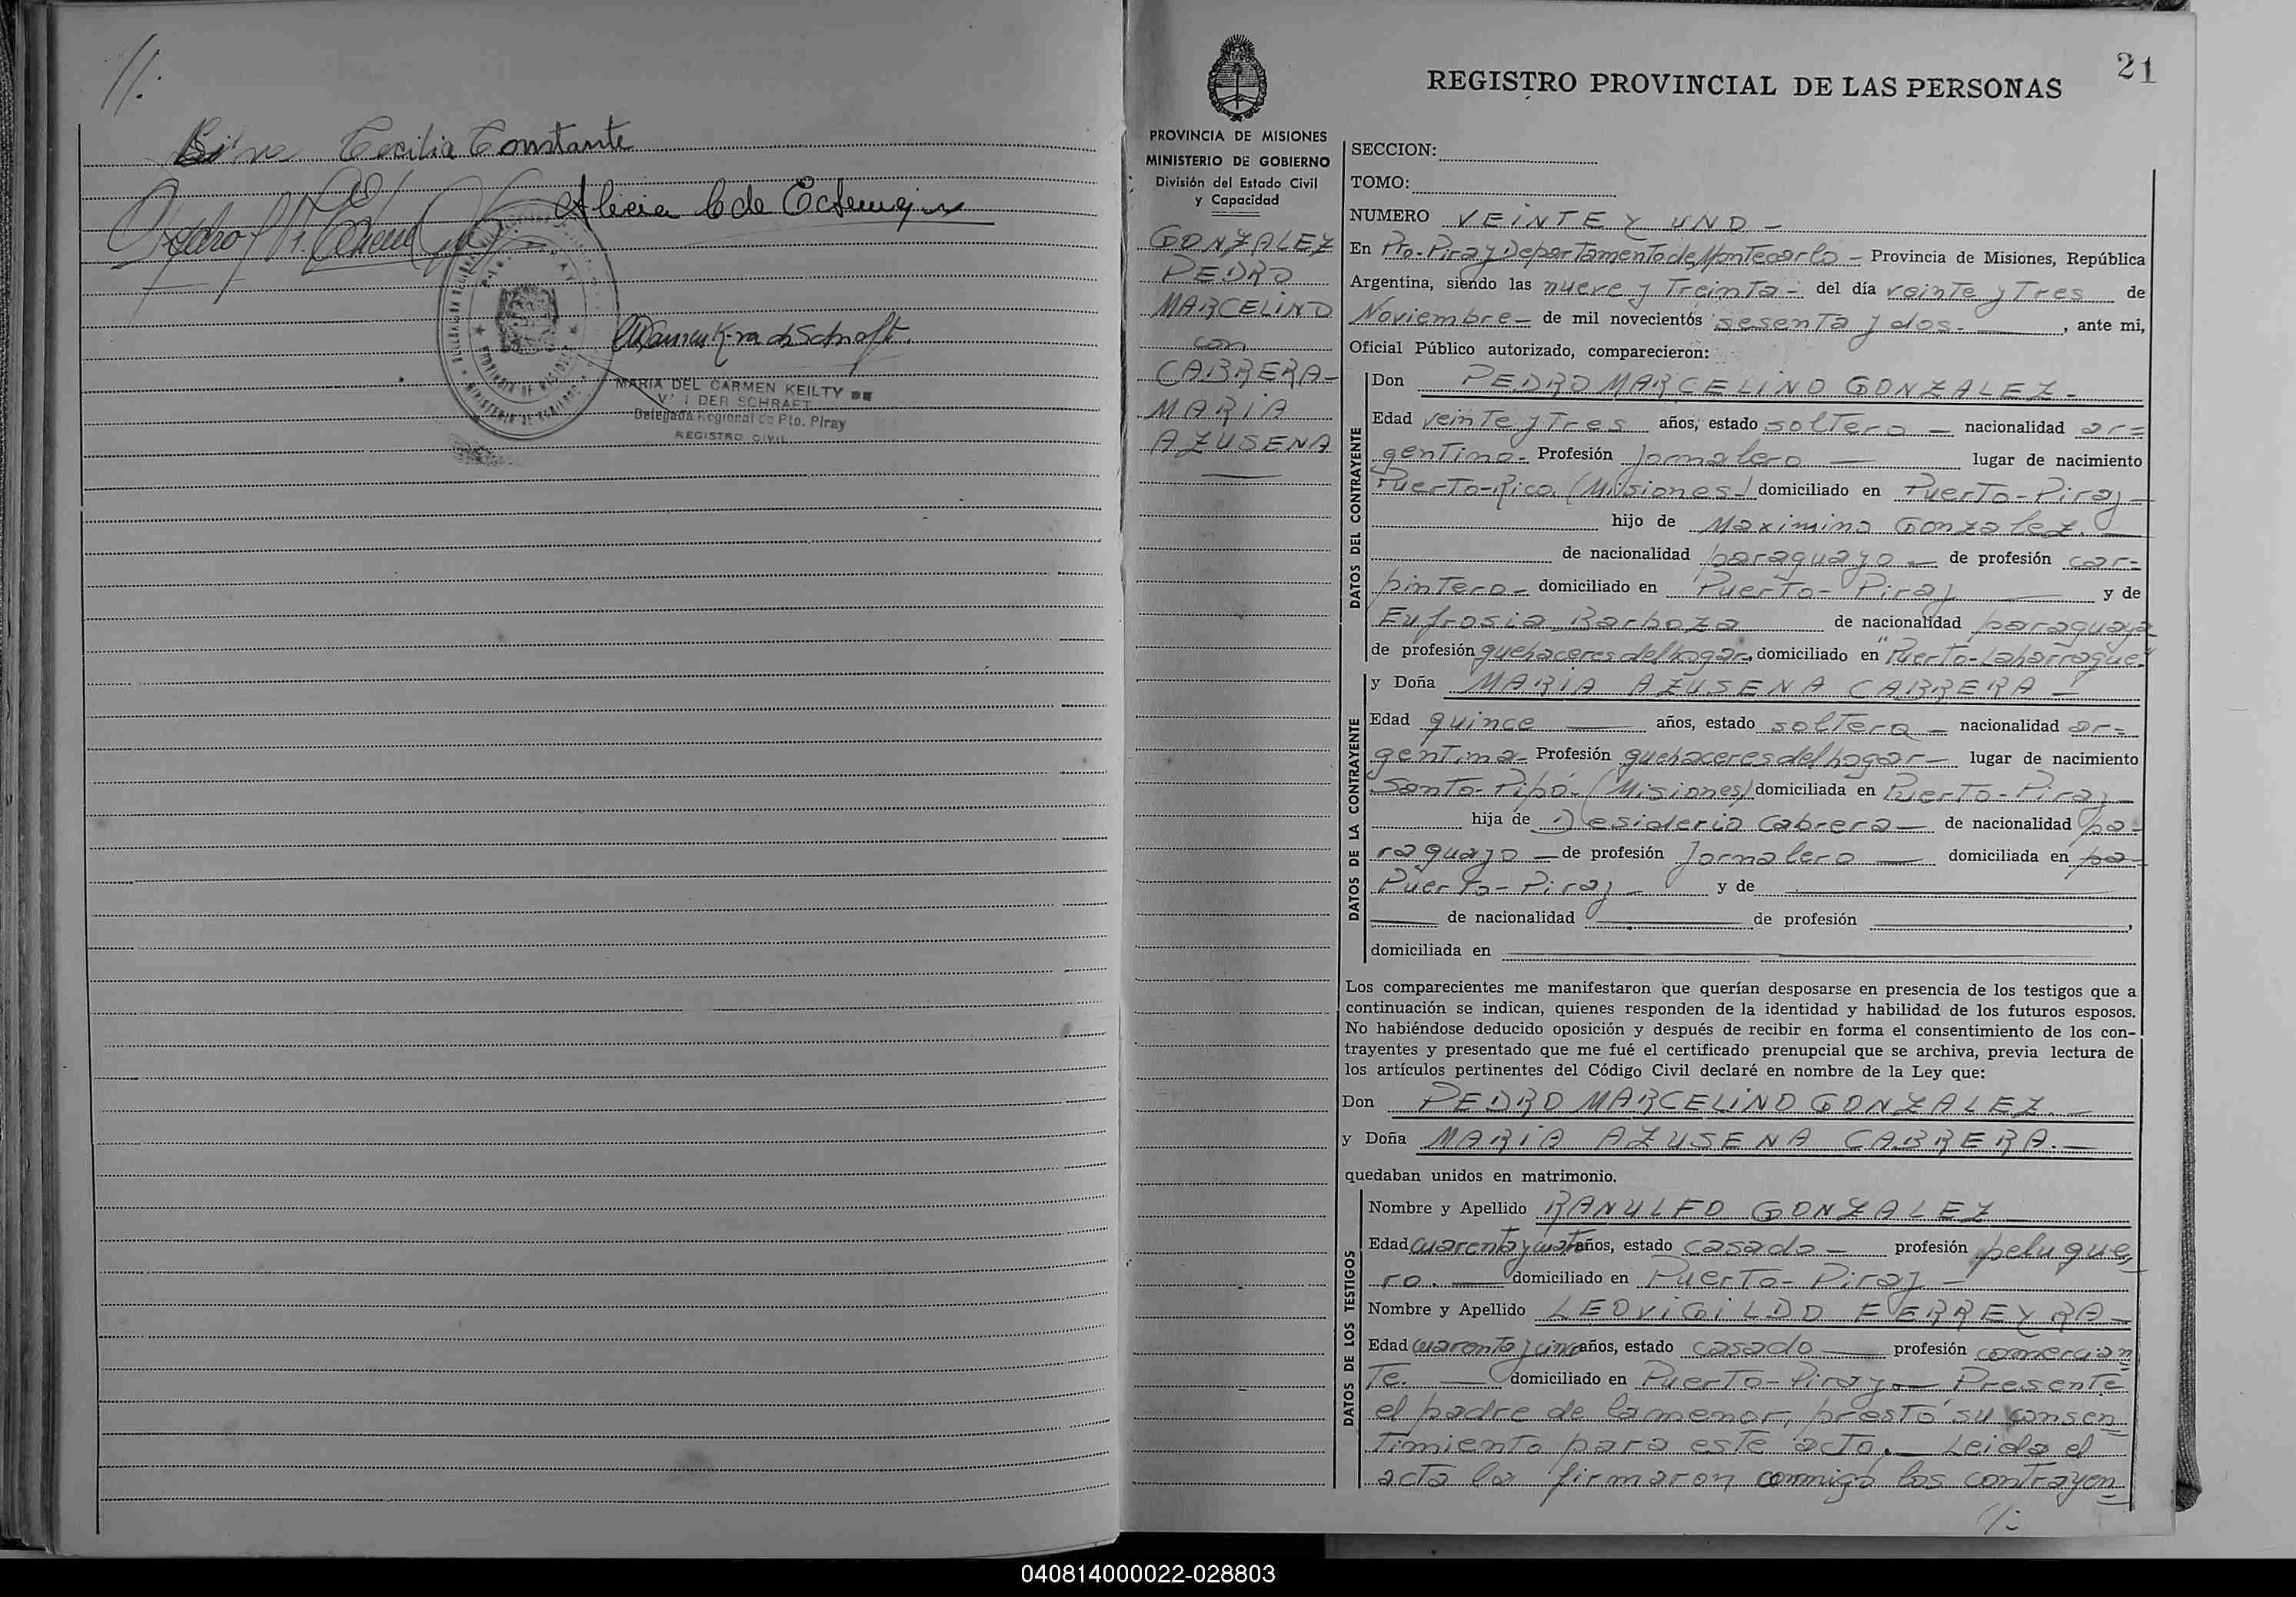 //.
Cecilia Constante
Alicia C de
MARIA DEL CARMEN KEILTY
DER SCHRAFT
Delegada Regional de Pto. Piray
REGISTRO CIVIL
21
REGISTRO PROVINCIAL DE LAS PERSONAS
PROVINCIA DE MISIONES
MINISTERIO DE GOBIERNO
División del Estado Civil
y Capacidad
GONZALEZ
PEDRO
MARCELINO
con
CABRERA-
MARIA
AZUSENA
SECCION:
TOMO:
NUMERO VEINTE Y UNO -
En Pto-Piray Departamento de Montecarlo - Provincia de Misiones, República
Argentina, siendo las nueve y Treinta - del día veinte y Tres de
Noviembre - de mil novecientos sesenta y dos. -, ante mi,
Oficial Público autorizado, comparecieron:
DATOS DEL CONTRAYENTE
Don PEDRO MARCELINO GONZALEZ -
Edad veinte y Tres años, estado soltero - nacionalidad ar=
gentino- Profesión Jornalero - lugar de nacimiento
Puerto-Rico (Misiones) domiciliado en Puerto-Piray-
hijo de Maximino Gonzalez. -
de nacionalidad paraguayo - de profesión car-
pintero - domiciliado en Puerto-Piray y de
Eufrosia Barboza de nacionalidad paraguaya
de profesión quehaceres del hogar, domiciliado en "Puerto-Laharrague"
DATOS DE LA CONTRAYENTE
y Doña MARIA AZUSENA CABRERA -
Edad quince - años, estado soltera - nacionalidad ar-
gentina- Profesión quehaceres del hogar - lugar de nacimiento
Santo-Pipó-(Misiones) domiciliada en Puerto-Piray-
hija de Desiderio Cabrera - de nacionalidad pa-
raguayo - de profesión Jornalero - domiciliada en pa-
Puerto-Piray - y de
de nacionalidad de profesión ,
domiciliada en
Los comparecientes me manifestaron que querían desposarse en presencia de los testigos que a
continuación se indican, quienes responden de la identidad y habilidad de los futuros esposos.
No habiéndose deducido oposición y después de recibir en forma el consentimiento de los con-
trayentes y presentado que me fué el certificado prenupcial que se archiva, previa lectura de
los artículos pertinentes del Código Civil declaré en nombre de la Ley que:
Don PEDRO MARCELINO GONZALEZ. -
y Doña MARIA AZUSENA CABRERA. -
quedaban unidos en matrimonio.
DATOS DE LOS TESTIGOS
Nombre y Apellido RANULFO GONZALEZ
Edad cuarenta y cuatro años, estado casado - profesión peluque,
ro. - domiciliado en Puerto-Piray -
Nombre y Apellido LEOVIGILDO FERREYRA -
Edad cuarenta y cinco años, estado casado - profesión comercian
Te. - domiciliado en Puerto-Piray - Presente
el padre de la menor, prestó su consen
timiento para este acto. - Leida el
acta la firmaron conmigo los contrayen
//:
040814000022-028803